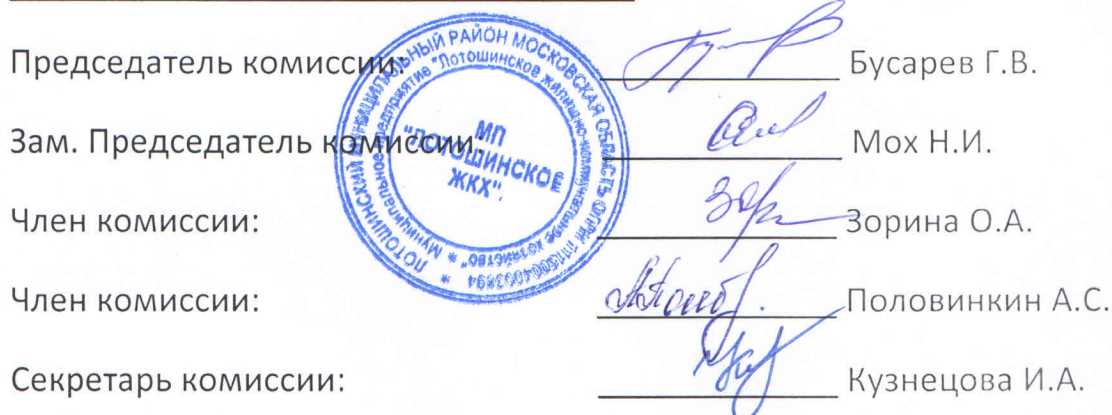 Председатель комиссии: Бусарев Г.В.
Зам. Председатель комиссии: Мох Н.И.
Член комиссии: Зорина О.А.
Член комиссии: Половинкин А.С.
Секретарь комиссии: Кузнецова И.А.
ЛОТОШИНСКИЙ МУНИЦИПАЛЬНЫЙ РАЙОН МОСКОВСКАЯ ОБЛАСТЬ ОГРН
* Муниципальное предприятие "Лотошинское жилищно-коммунальное хозяйство" *
МП
"ЛОТОШИНСКОЕ
ЖКХ"